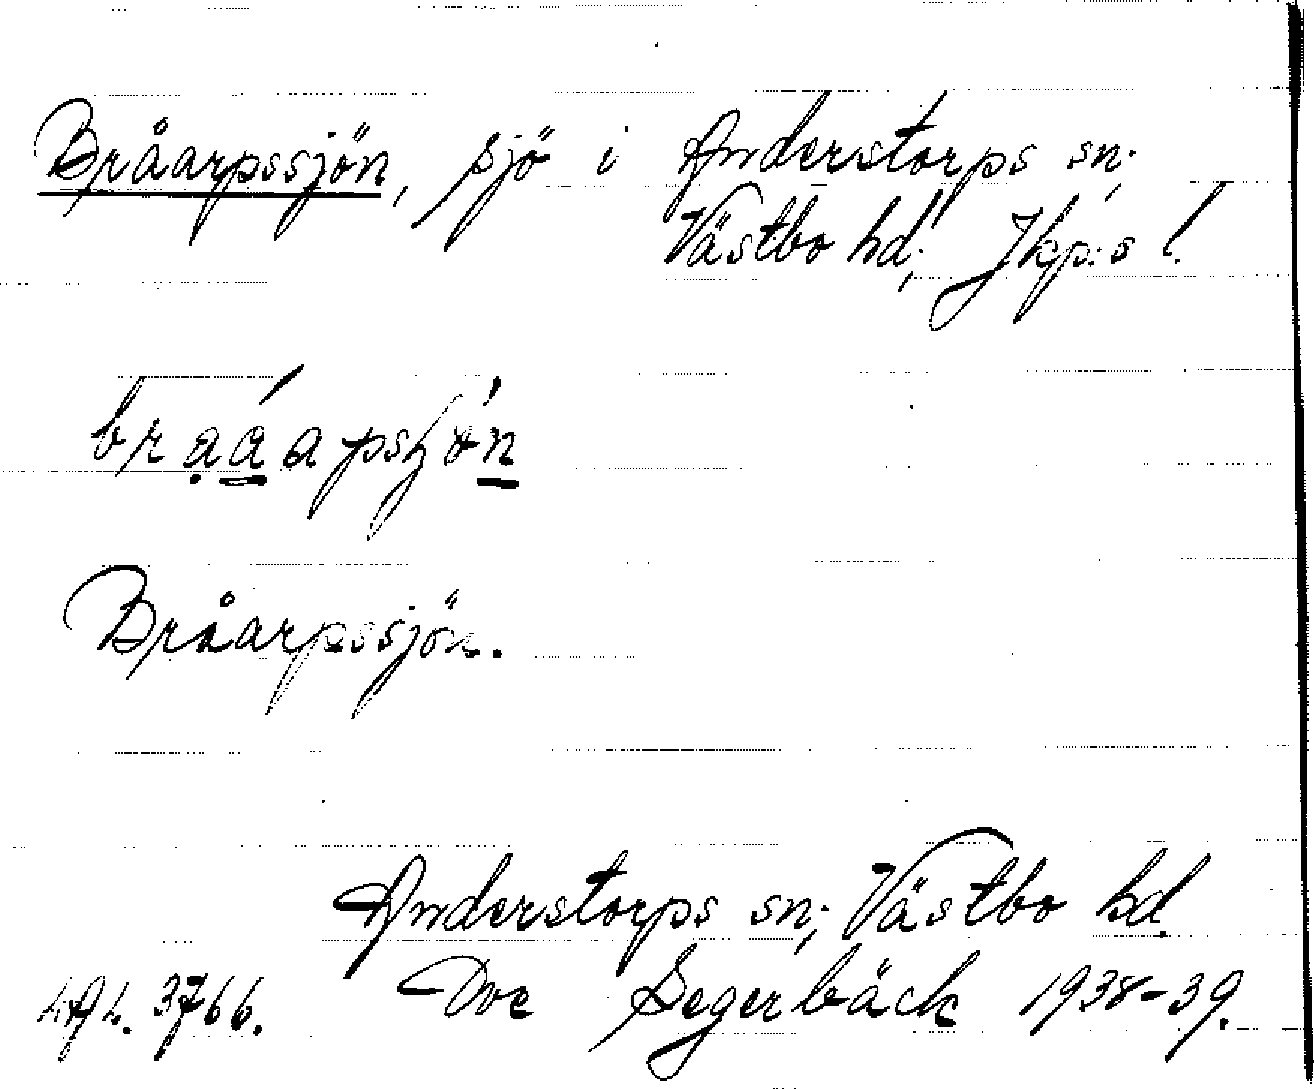 Bråarpssjön, sjö i Anderstorps sn;
Västbo hd; Jkp:s l.
Bråarpssjön.
Anderstorps sn; Västbo hd.
LAL. 3766. Segerbäck 1938-39.